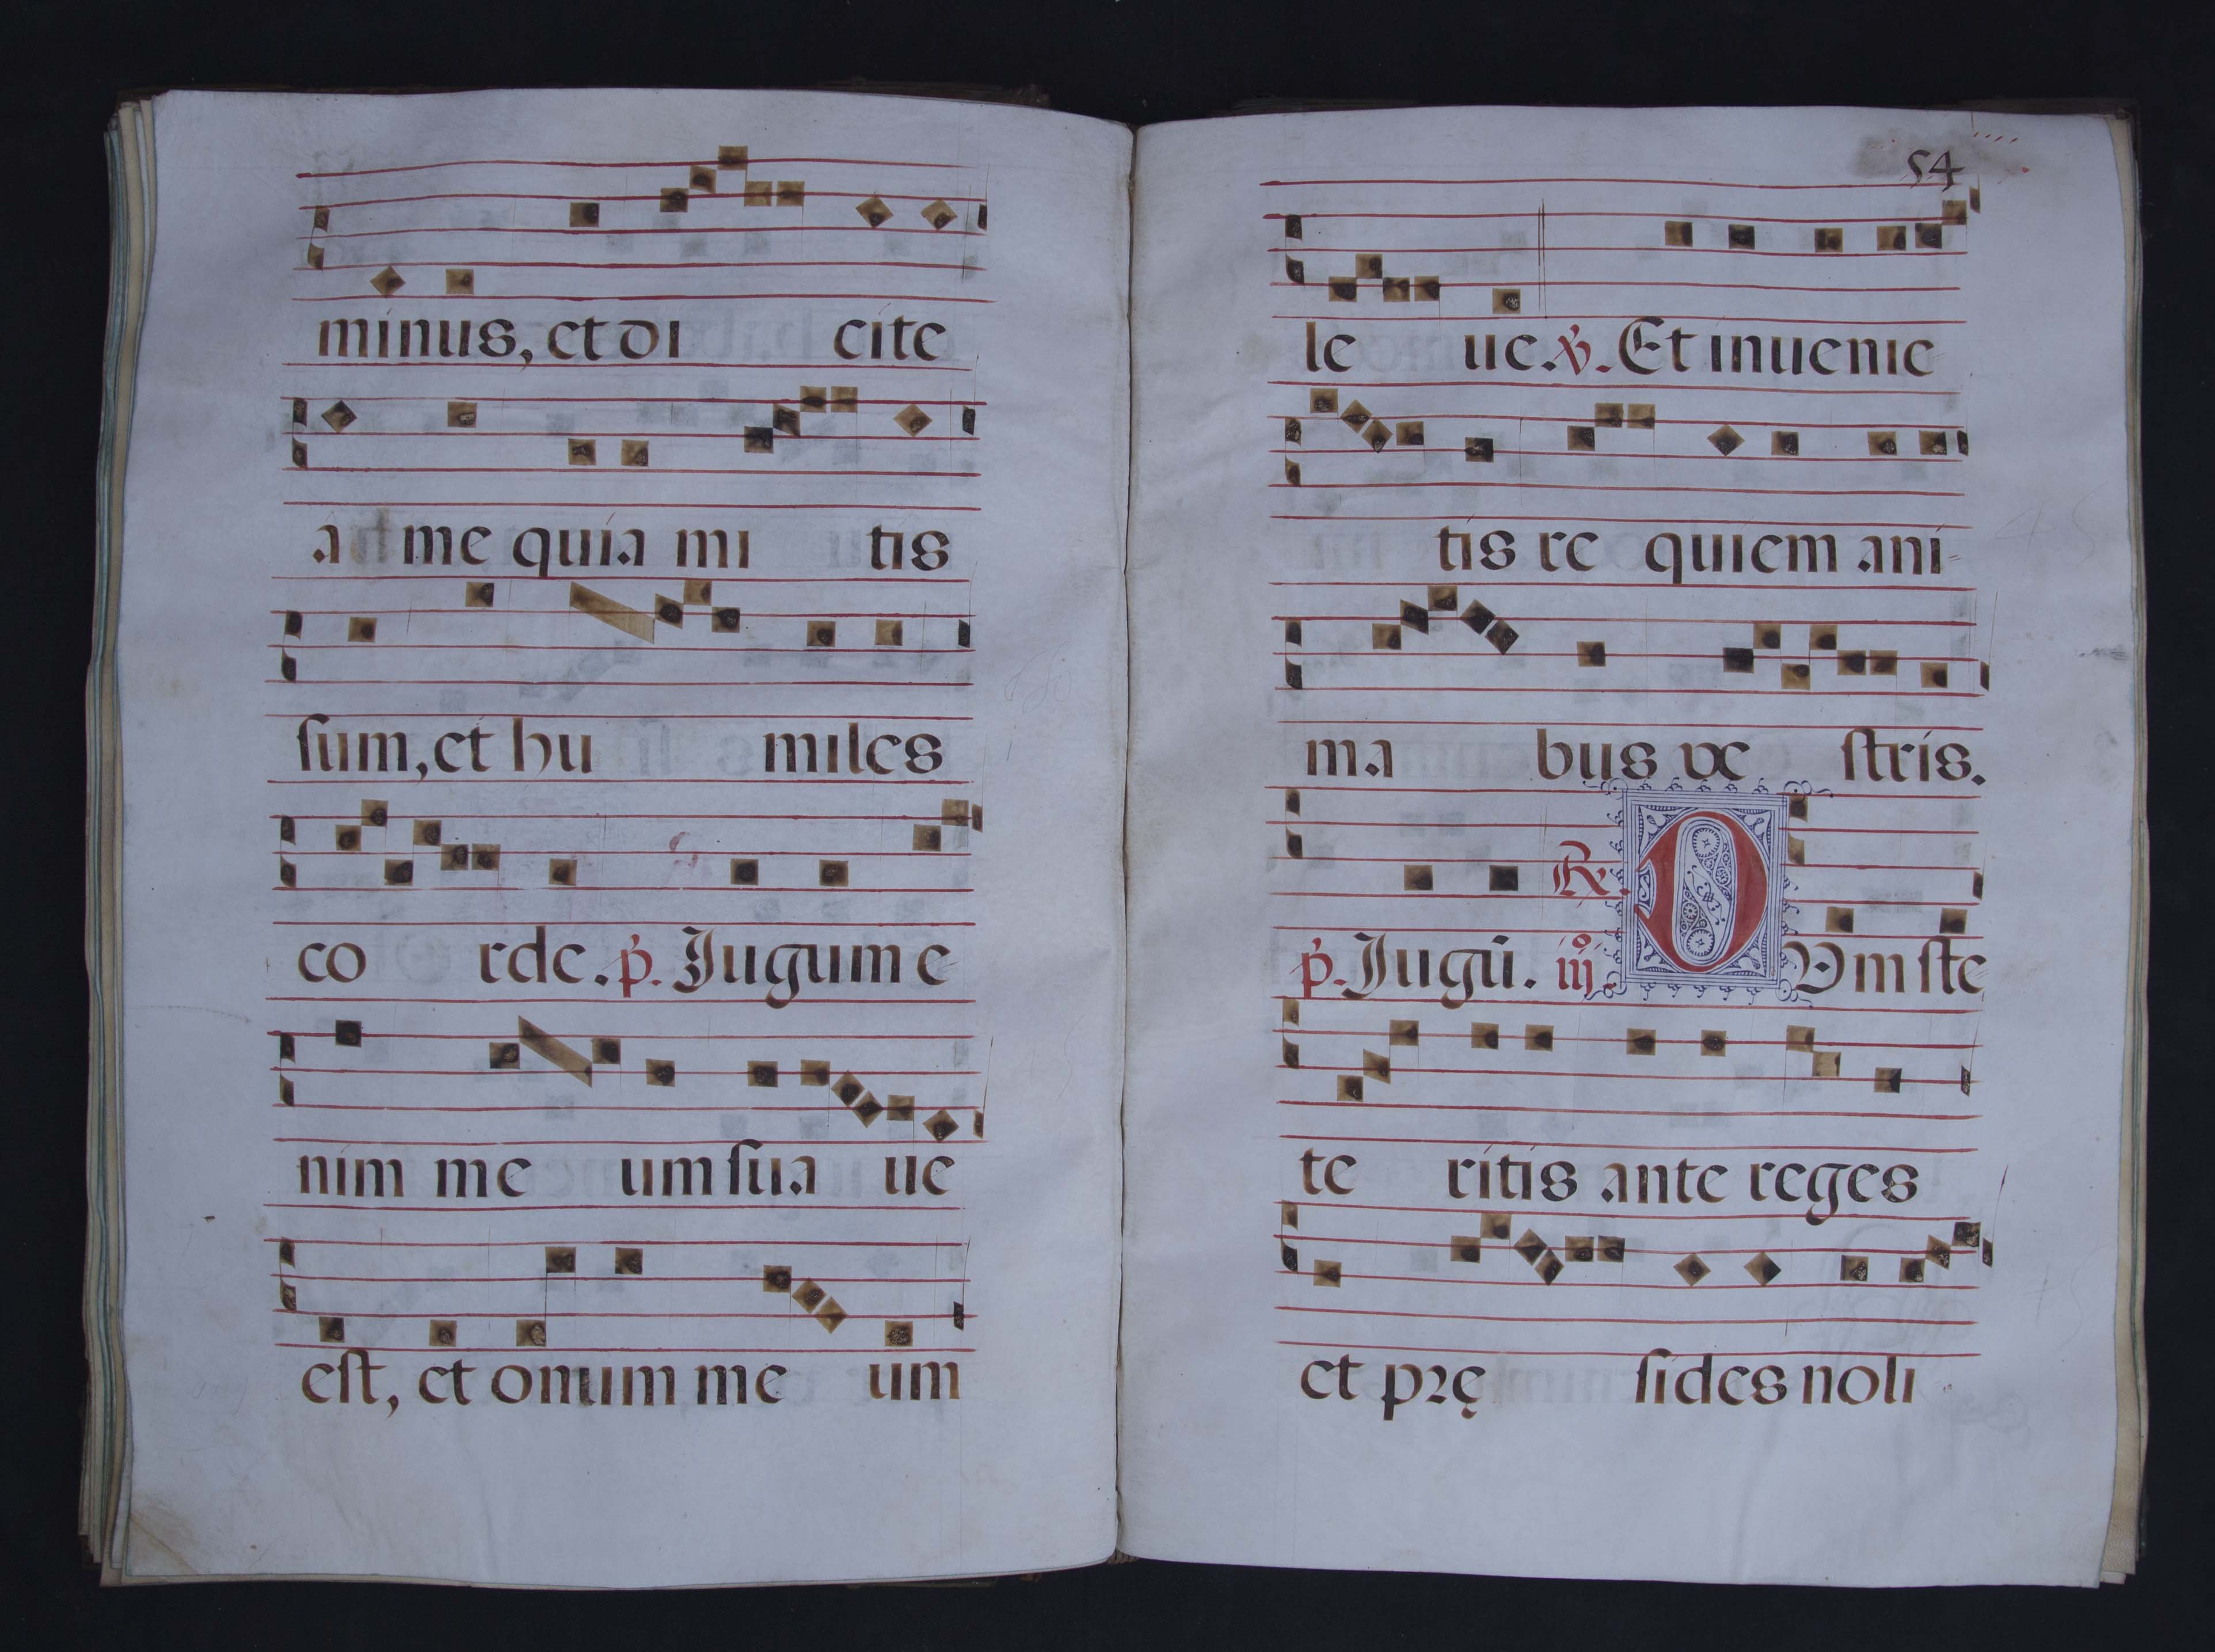 minus, et di cite
a me quia mi tis
sum, et hu miles
co rde. p. Jugum e
nim me um sua ue
est, et onum me um
54
le ue. V. Et inuenie-
tis re quiem ani-
ma bus ve stris.
p. Jugū. R. iij. O Vm ste
te ritis ante reges
et pre sides noli